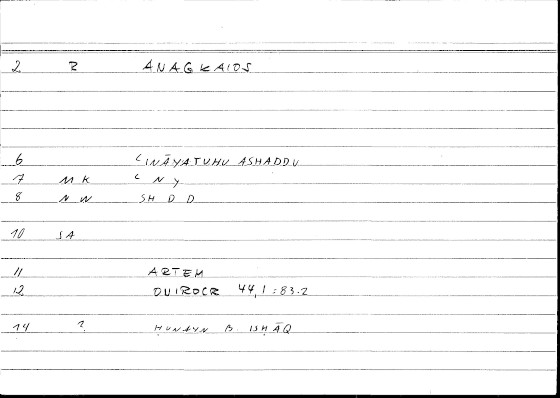 2 R ANAGKAIOS
6 ʿINĀYATUHU ASHADDU
7 MK ʿ N Y
8 NW SH D D
10 SA
11 ARTEM
12 OUIROCR 44,1:83.2
14 ? ḤUNAYN B. ISḤĀQ